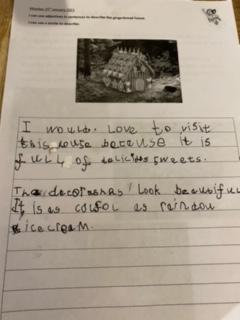 I can use adjectives in sentences to describe the gingerbread house.
I can use a simile to describe.
I would. Love to visit
this house because it is
full of delicious sweets.
The decorashas look beautiful
It is as coulfol as rainbow
icecream.